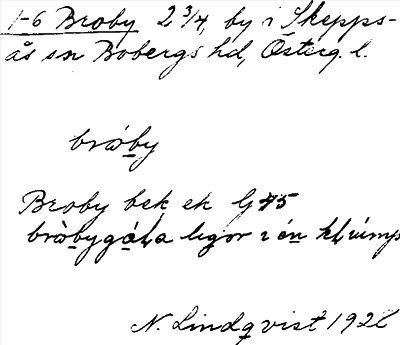 1-6 Broby 2 3/4, by i Skepps-
ås sn Bobergs hd, Österg. l.
bròby
Broby bek ek G 45
bròbygáḷa ligor i én kḷúmp
N. Lindqvist 1926